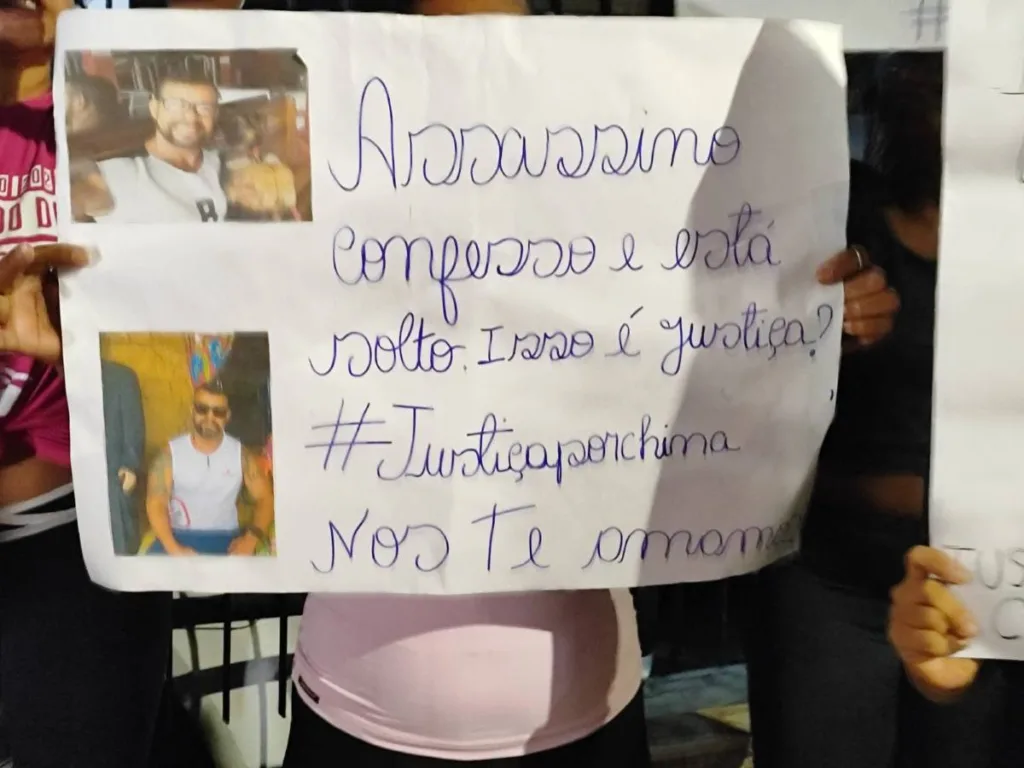 Assassino
confesso e está
solto. Isso é justiça?
#Justiçaporchima
Nos Te amamos
#
JUS
C
B